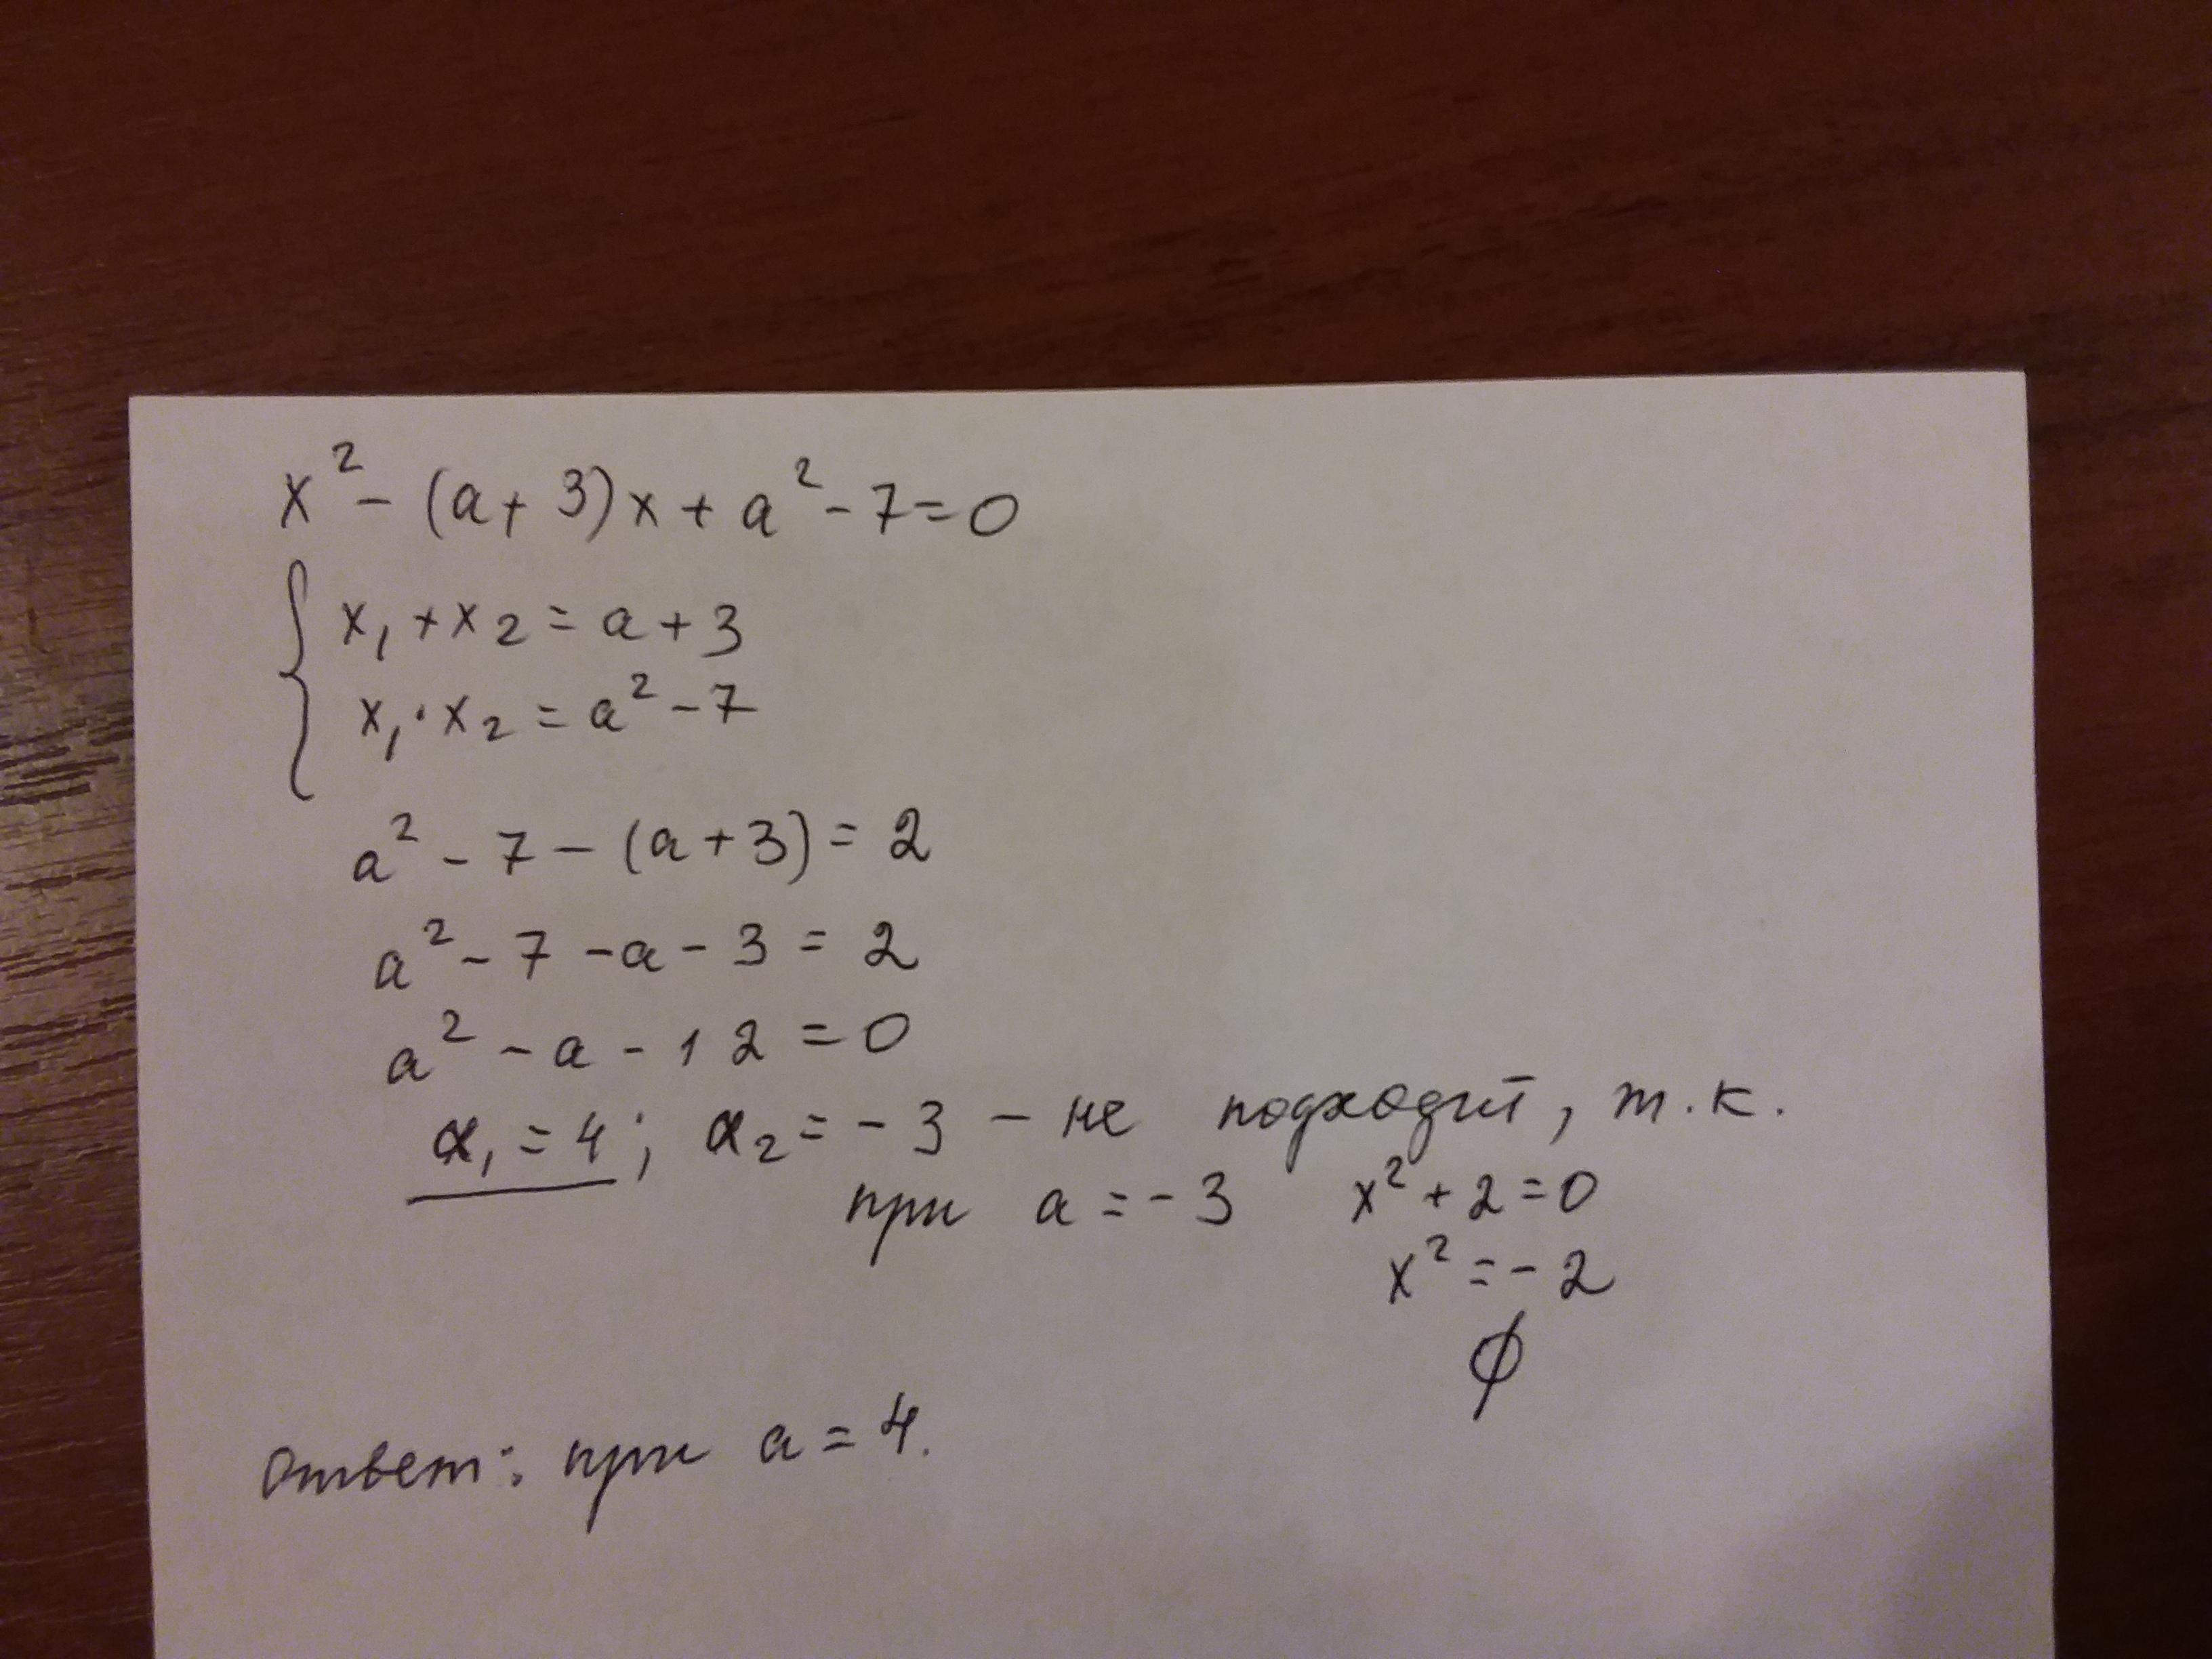 x² - (a + 3)x + a² - 7 = 0
x₁ + x₂ = a + 3
x₁ · x₂ = a² - 7
a² - 7 - (a + 3) = 2
a² - 7 - a - 3 = 2
a² - a - 12 = 0
a₁ = 4; a₂ = -3 - не подходит, т.к.
при a = -3 x² + 2 = 0
x² = -2
∅
Ответ: при a = 4.